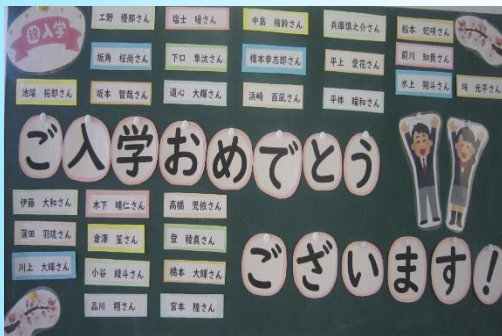 祝入学
工野 優那さん 塩士 瑛さん 中島 侑鈴さん 兵庫慎之介さん 船本 妃咲さん
坂角 柾尚さん 下口 隼汰さん 橋本幸志郎さん 平上 愛花さん 前川 知貴さん
池端 拓郎さん 坂本 智哉さん 道心 大輝さん 浜崎 百凪さん 平体 瞳和さん 水上 朔斗さん 埼 光平さん
ご入学おめでとう
伊藤 大和さん 木下 晴仁さん 高橋 さん
蒲田 羽琉さん 倉澤 笙さん 登 稜真さん
川上 大暉さん 小谷 綾斗さん 橋本 大輝さん
品川 朔さん 宮本 陸さん
ございます!